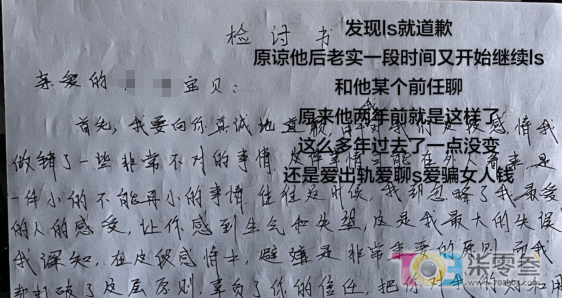 检讨书
发现ls就道歉
原谅他后老实一段时间又开始继续ls
亲爱的 宝贝：
和他某个前任聊
原来他两年前就是这样了
首先，我要向你真诚地道歉 段感情我
这么多年过去了一点没变
做错了一些非常不对的事情，这件事情可能在外人看来是
还是爱出轨爱聊s爱骗女人钱
一件小的不能再小的事情，往往这时候，我却忽略了我最爱
的人的感受，让你感到生气和失望，这是我最大的失误
我深知，在这段感情中，避嫌是非常重要的原则，而我
却打破了这层原则，辜负了你的信任，把你对我
柒零叁